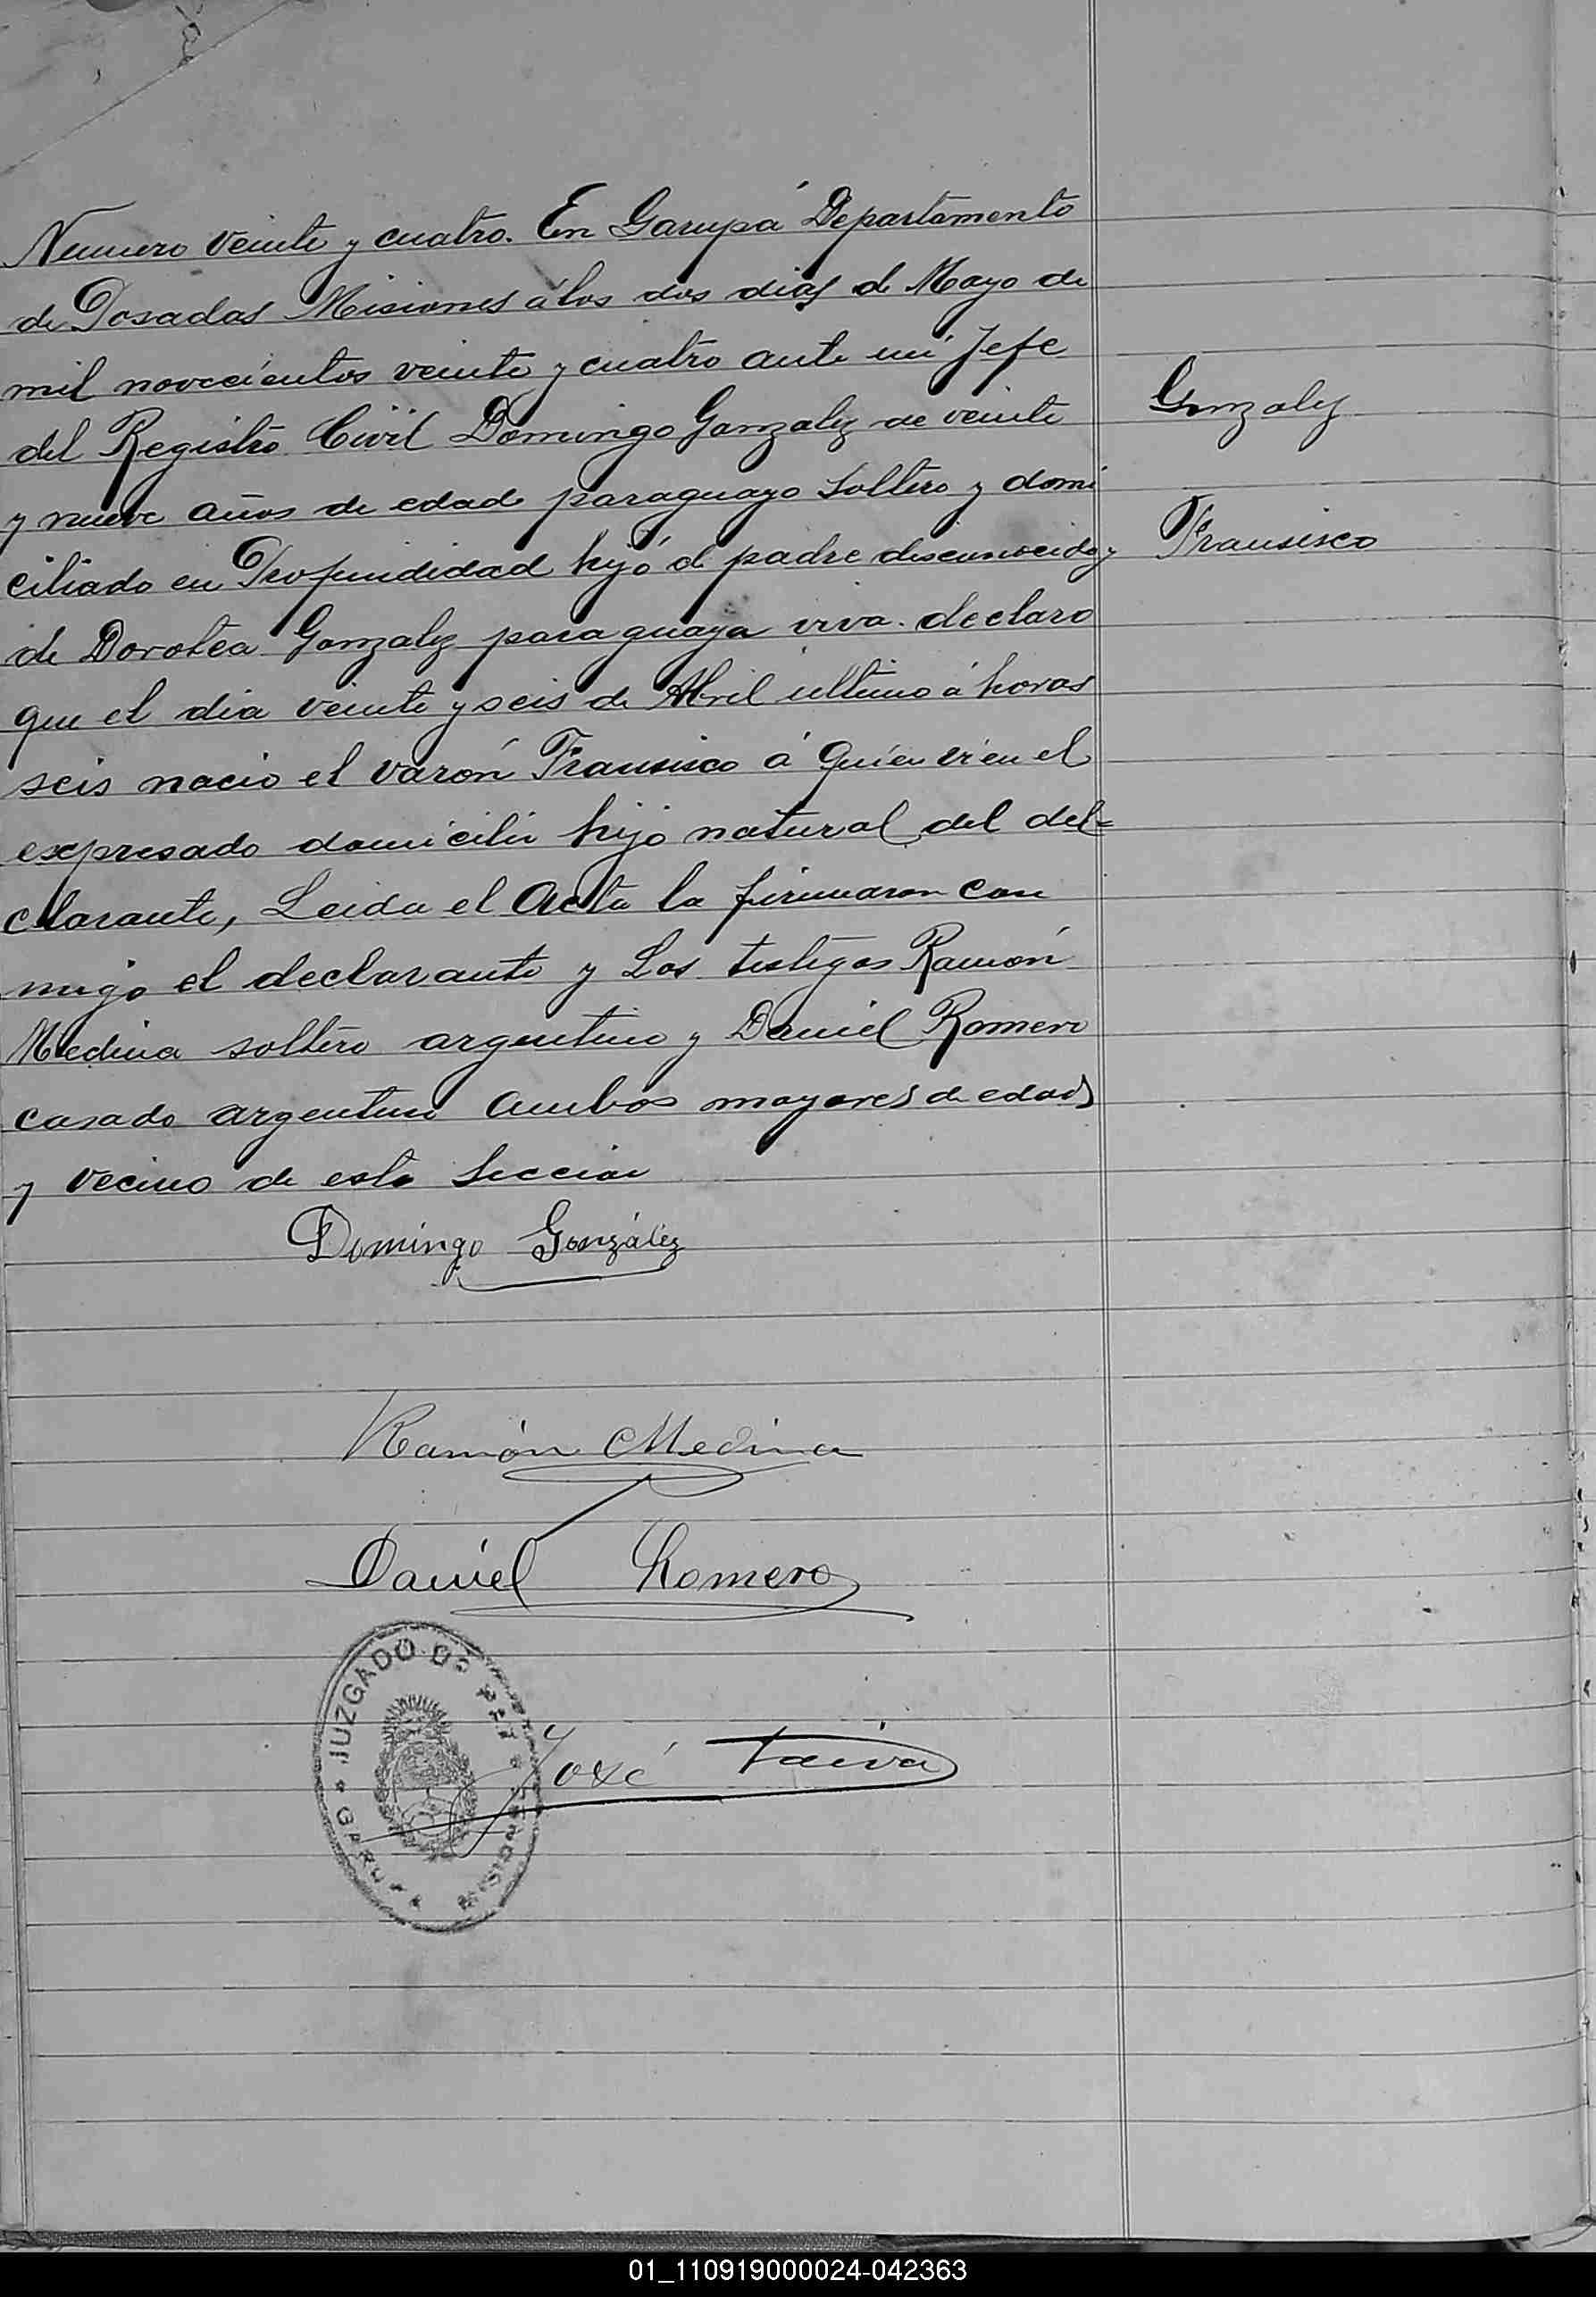 Numero veinte y cuatro. En Garupá Departamento
de Posadas Misiones á los dos dias de Mayo de
mil novecientos veinte y cuatro ante mi Jefe
del Registro Civil Domingo Gonzalez de veinte
y nueve años de edad paraguayo soltero y domi
ciliado en Profundidad hijo de padre desconocido y
de Dorotea Gonzalez paraguaya viva. declaro
que el dia veinte y seis de Abril ultimo á horas
seis nacio el varón Fransisco á quien ví en el
expresado domicilio hijo natural del del=
clarante, Leida el Acta la firmaron con
migo el declarante y Los testigos Ramón
Medina soltero argentino y Daniel Romero
casado argentino ambos mayores de edad
y vecino de esta Seccion
Gonzalez
Fransisco
Domingo González
Ramón Medina
Daniel Romero
JUZGADO DE PAZ
GARUPA
MISIONES
José Paiva
01_110919000024-042363